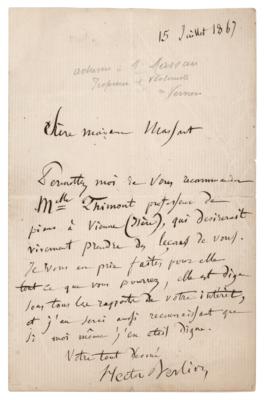 15 Juillet 1867
Chère madame Massart
Permettez moi de vous recommander
Mlle Thimont professeur de
piano à Vienne (Isère), qui désirerait
vivement prendre des leçons de vous.
Je vous en prie faites pour elle
tout ce que vous pourrez, elle est digne
sous tous les rapports de votre intérêt,
et j'en serai aussi reconnaissant que
si moi même j'en étais digne.
Votre tout dévoué
Hector Berlioz